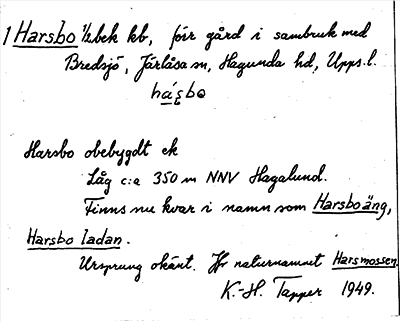 1 Harsbo 1/2bek kb, förr gård i sambruk med
Bredsjö, Järlåsa sn, Hagunda hd, Upps.l.
hásbo
Harsbo obebygdt ek
Låg c:a 350 m NNV Hagalund.
Finns nu kvar i namn som Harsbo äng,
Harsbo ladan.
Ursprung okänt. Jfr naturnamnet Harsmossen.
K.-H. Tapper 1949.